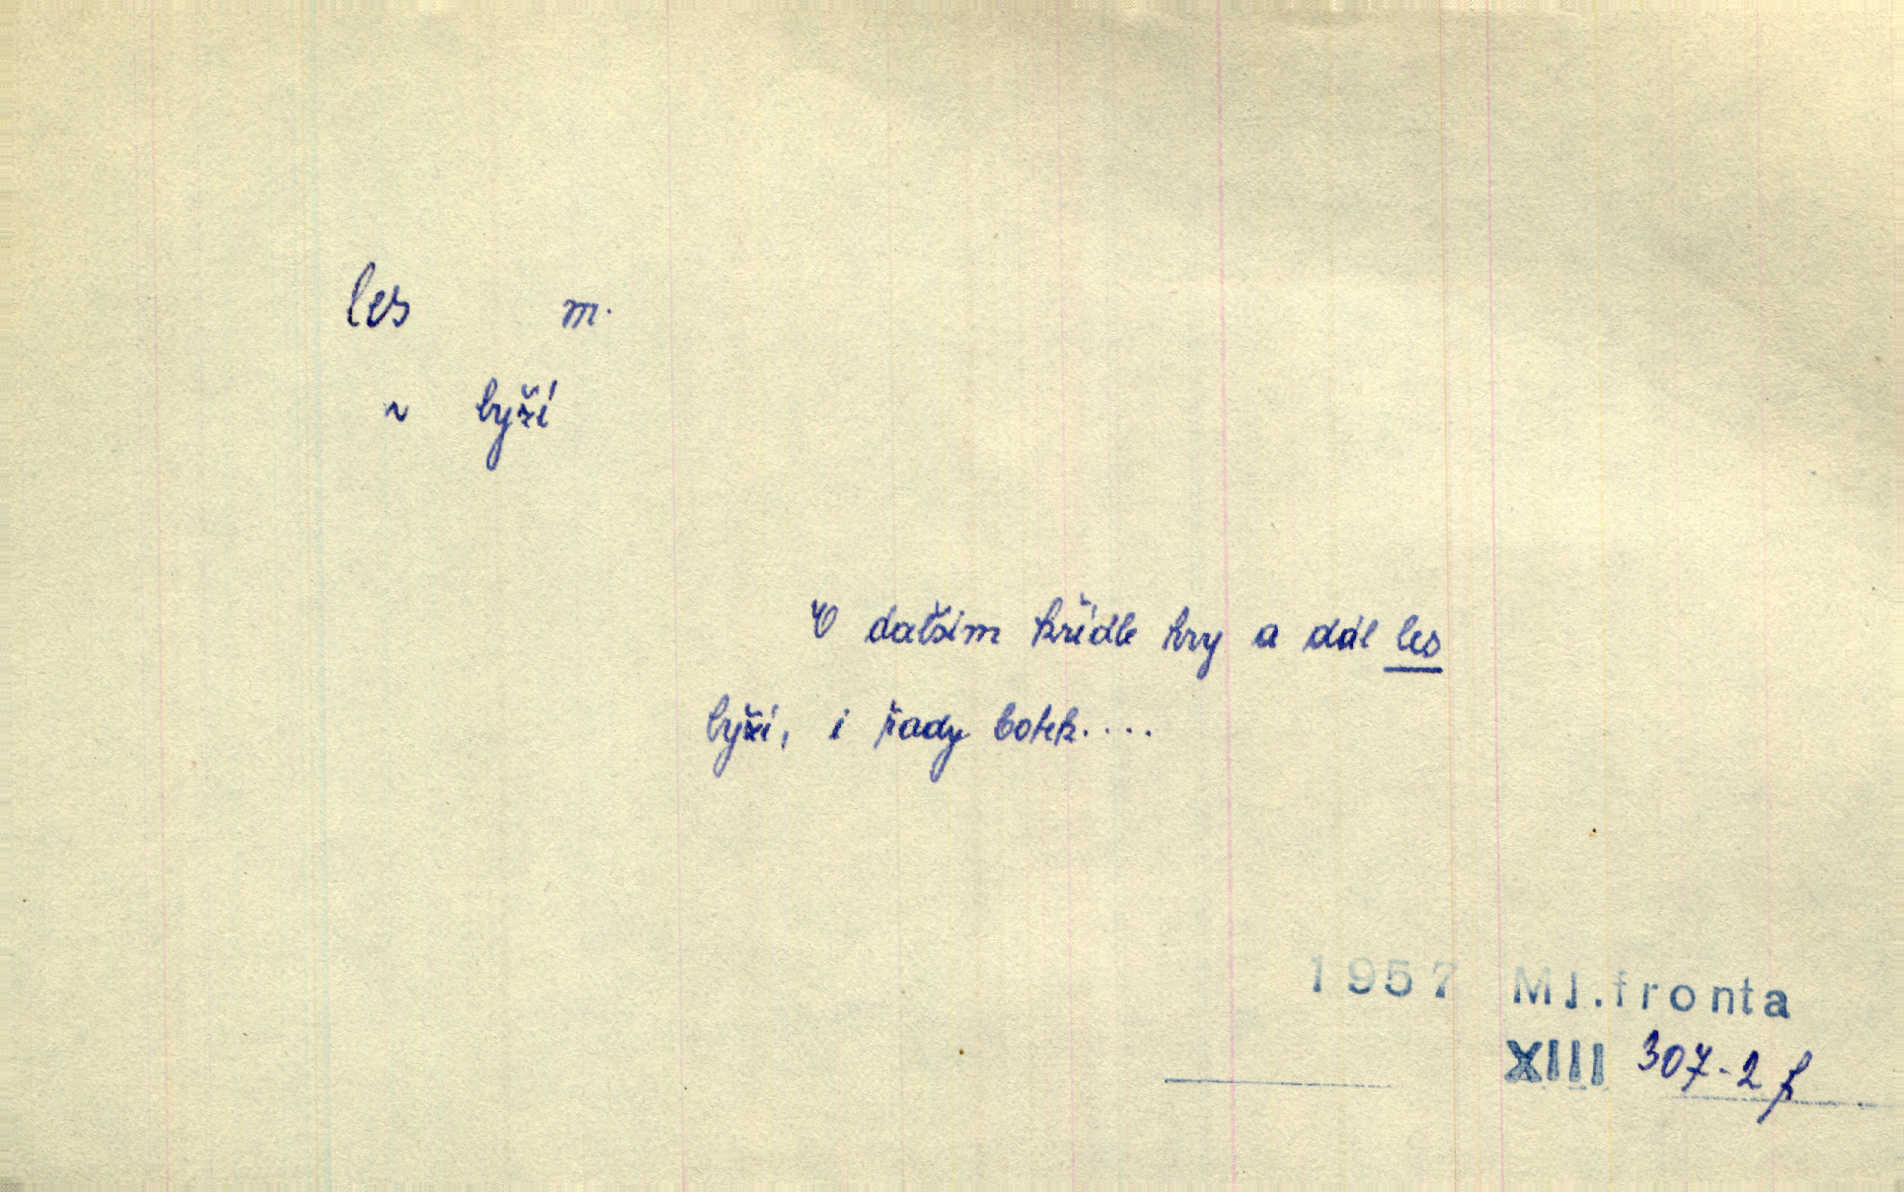 les m.
~ lyží
V dalším křídle hry a dál les
lyží, i řady botek....
1957 Ml.fronta
XIII 307-2 f